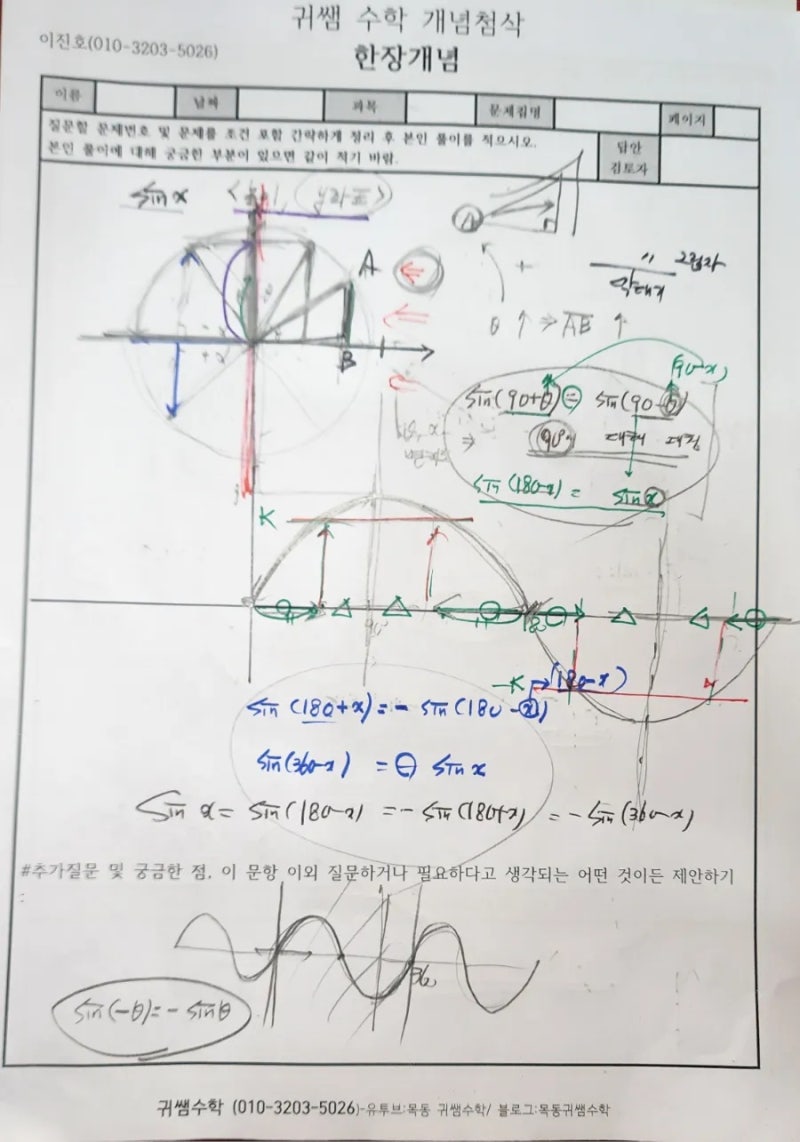 귀쌤 수학 개념첨삭
이진호(010-3203-5026)
한장개념
이름 날짜 과목 문제집명 페이지
질문할 문제번호 및 문제를 조건 포함 간략하게 정리 후 본인 풀이를 적으시오.
본인 풀이에 대해 궁금한 부분이 있으면 같이 적기 바람.
답안
검토자
sin x
A
+
" 그림자
막대기
θ ↑ ⇒ AB ↑
B
(90-x)
sin(90+θ) = sin(90-θ)
⇒ 90°에 대해 대칭
sin(180-x) = sin x
K
90°
180
-K
(180-x)
sin(180+x) = - sin(180-x)
sin(360-x) = - sin x
sin x = sin(180-x) = - sin(180+x) = - sin(360-x)
#추가질문 및 궁금한 점. 이 문항 이외 질문하거나 필요하다고 생각되는 어떤 것이든 제안하기
:
360
sin(-θ) = - sinθ
귀쌤수학 (010-3203-5026)-유투브:목동 귀쌤수학/ 블로그:목동귀쌤수학